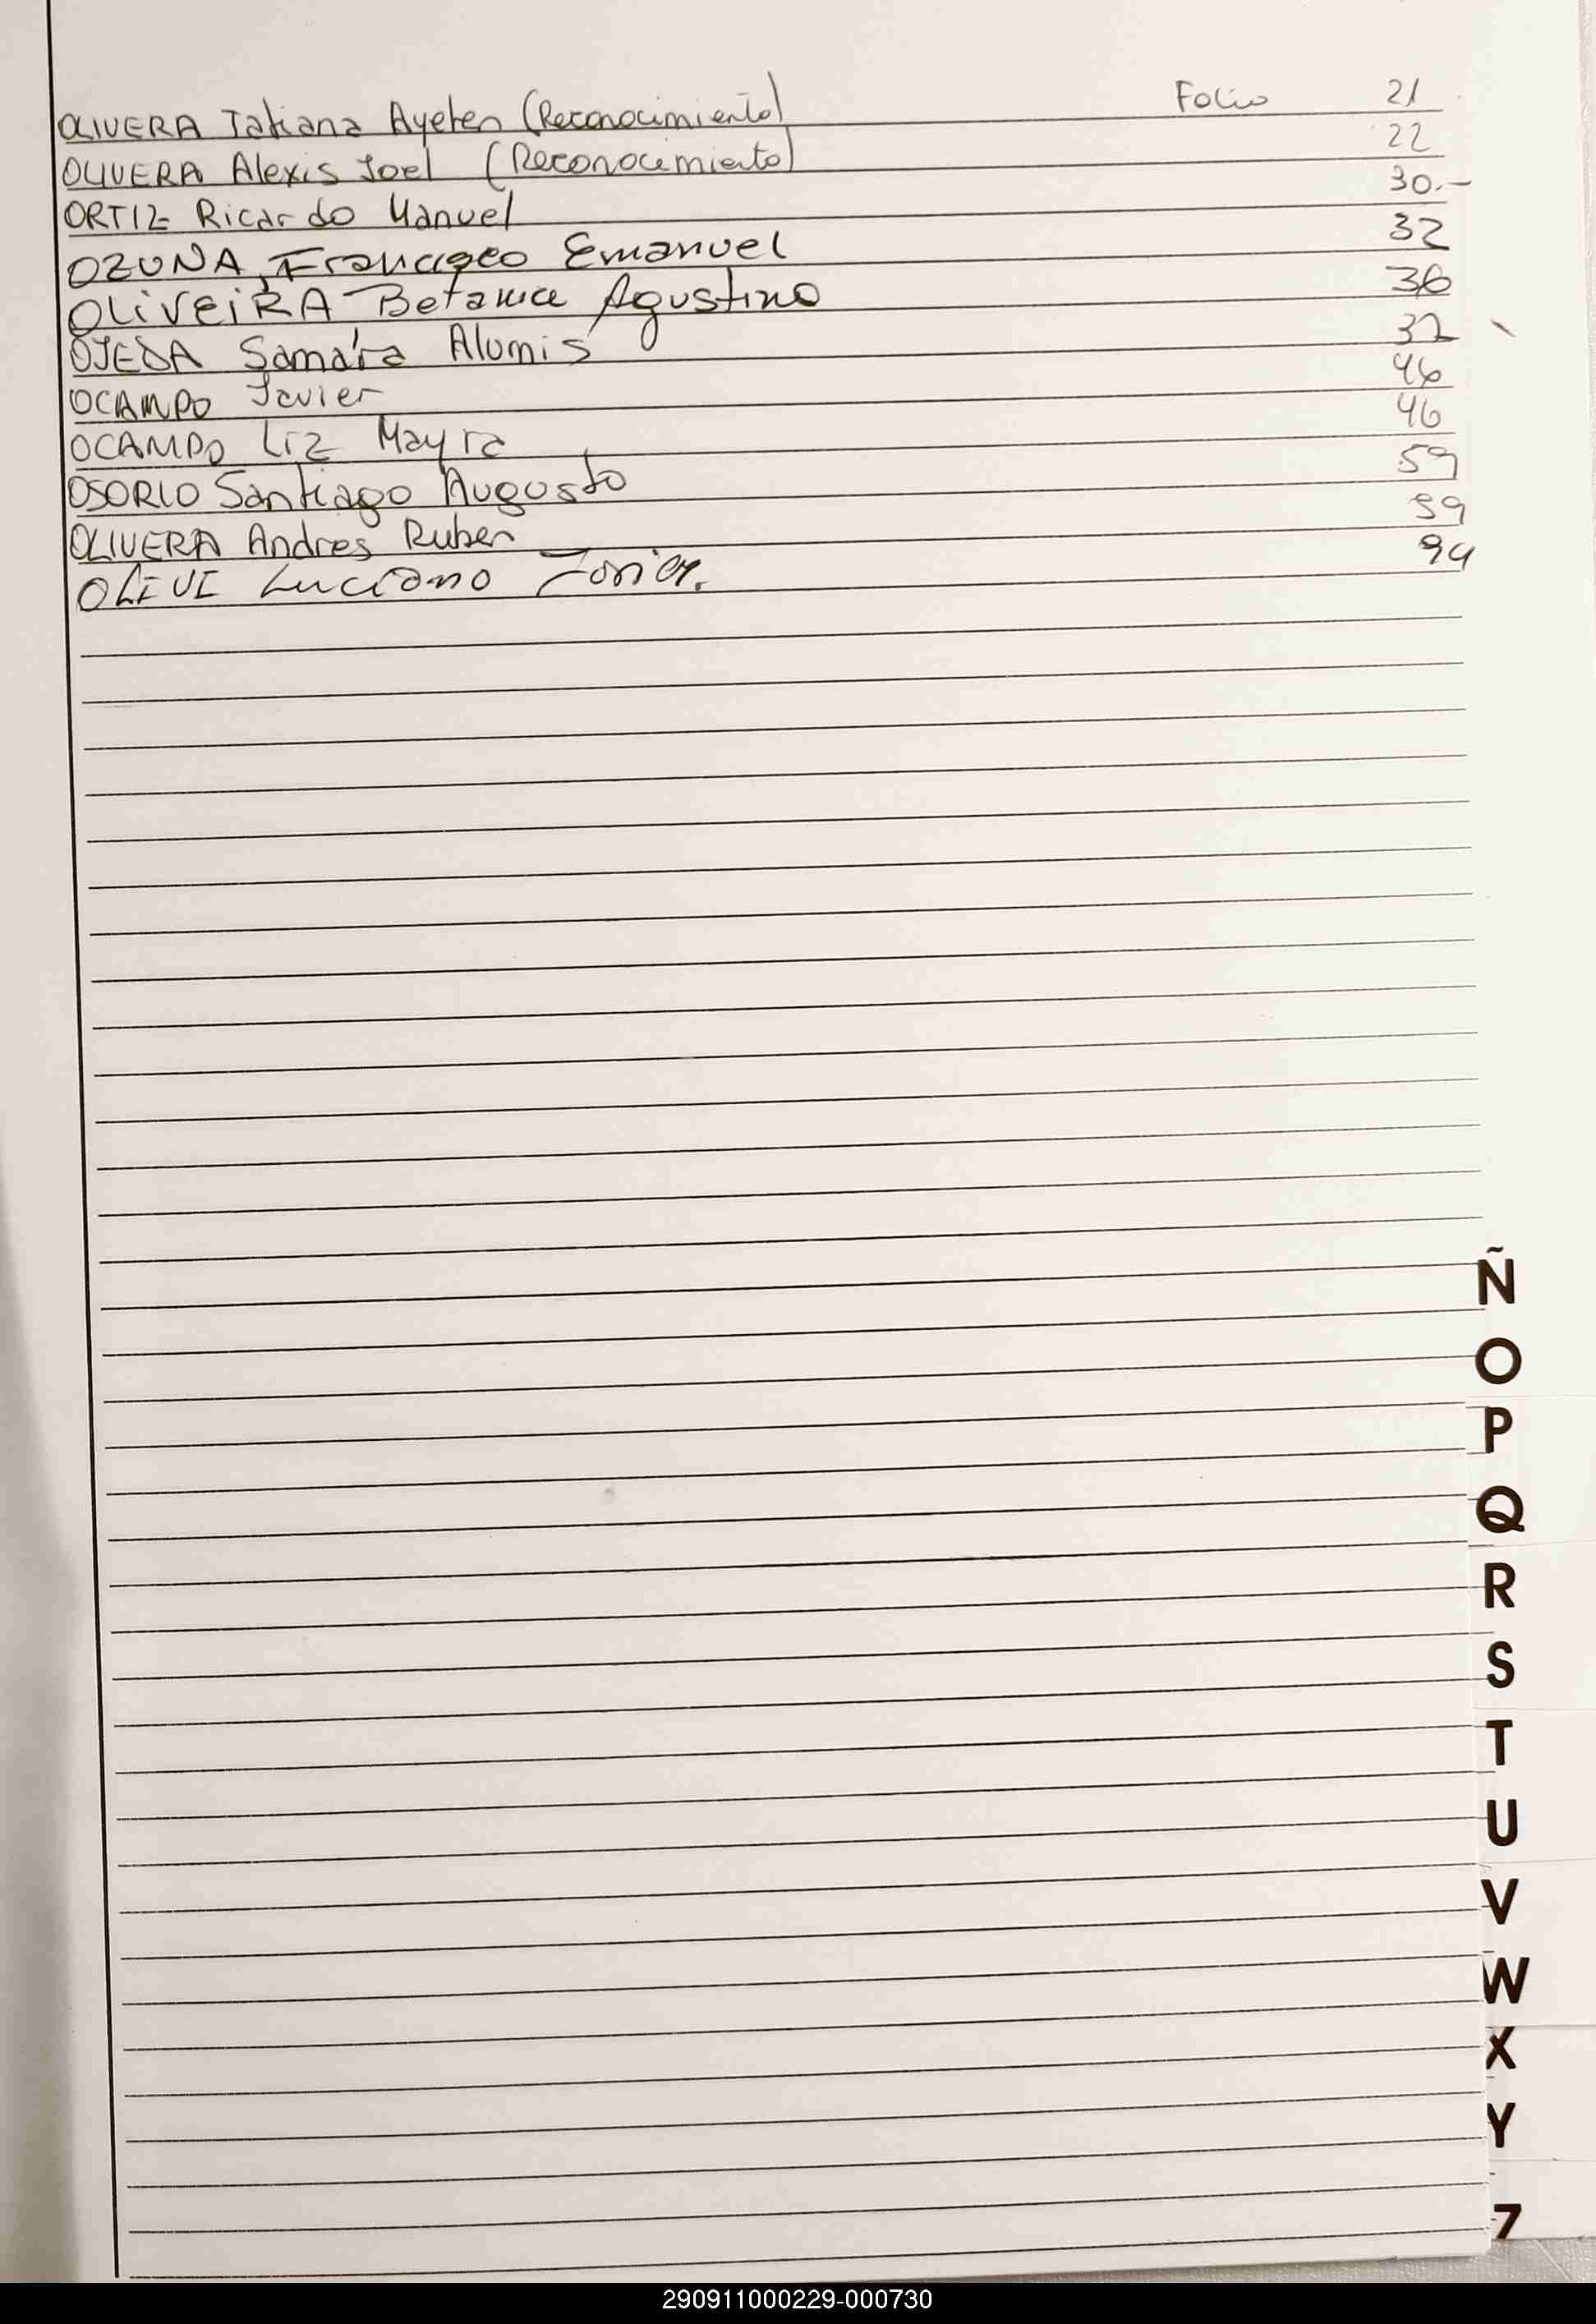 OLIVERA Tatiana Ayelen (Reconocimiento) Folio 21
OLIVERA Alexis Joel (Reconocimiento) 22
ORTIZ Ricardo Manuel 30.-
OZUNA, Francisco Emanuel 32
OLIVEIRA Betania Agustina 36
OJEDA Samara Alumis 37
OCAMPO Javier 46
OCAMPO Liz Mayra 46
OSORIO Santiago Augusto 59
OLIVERA Andres Ruben 59
OLIVE Luciano 94
Ñ
O
P
Q
R
S
T
U
V
W
X
Y
Z
290911000229-000730